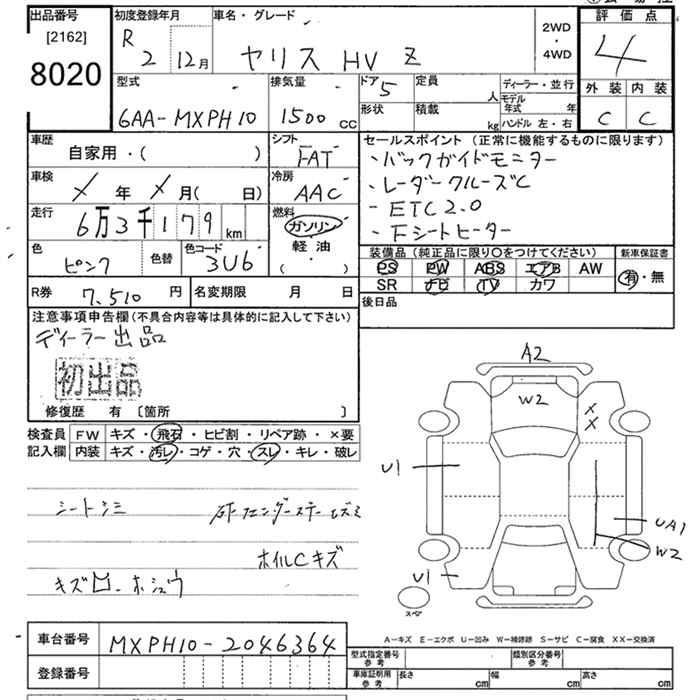 出品番号
[2162]
8020
初度登録年月
R 2 12月
車名・グレード
ヤリス HV Z
2WD
・
4WD
評価点
4
外装 内装
C C
型式
6AA-MXPH10
排気量
1500 cc
ドア 5
形状
定員 人
積載 kg
ディーラー・並行
モデル年式 年
ハンドル 左・右
車歴
自家用・( )
シフト
FAT
車検
年 月( 日)
冷房
AAC
走行
6万3千179 km
燃料
ガソリン
・
軽油
・
( )
色
ピンク
色替
色コード
3U6
R券 7,510 円
名変期限 月 日
セールスポイント (正常に機能するものに限ります)
・バックガイドモニター
・レーダークルーズC
・ETC2.0
・Fシートヒーター
装備品(純正品に限り○をつけてください)
PS PW ABS エアB AW
SR ナビ TV カワ
新車保証書
有・無
後日品
注意事項申告欄(不具合内容等は具体的に記入して下さい)
ディーラー出品
初出品
修復歴 有 〔箇所 〕
検査員記入欄
FW キズ・飛石・ヒビ割・リペア跡・×要
内装 キズ・汚レ・コゲ・穴・スレ・キレ・破レ
シートシミ
ホイルCキズ
A2
W2
X
X
U1
UA1
W2
U1
スペア
A-キズ E-エクボ U-凹み W-補修跡 S-サビ C-腐食 XX-交換済
車台番号 MXPH10-2046364
登録番号
型式指定番号 参考
類別区分番号 参考
車庫証明用 参考
長さ cm
幅 cm
高さ cm